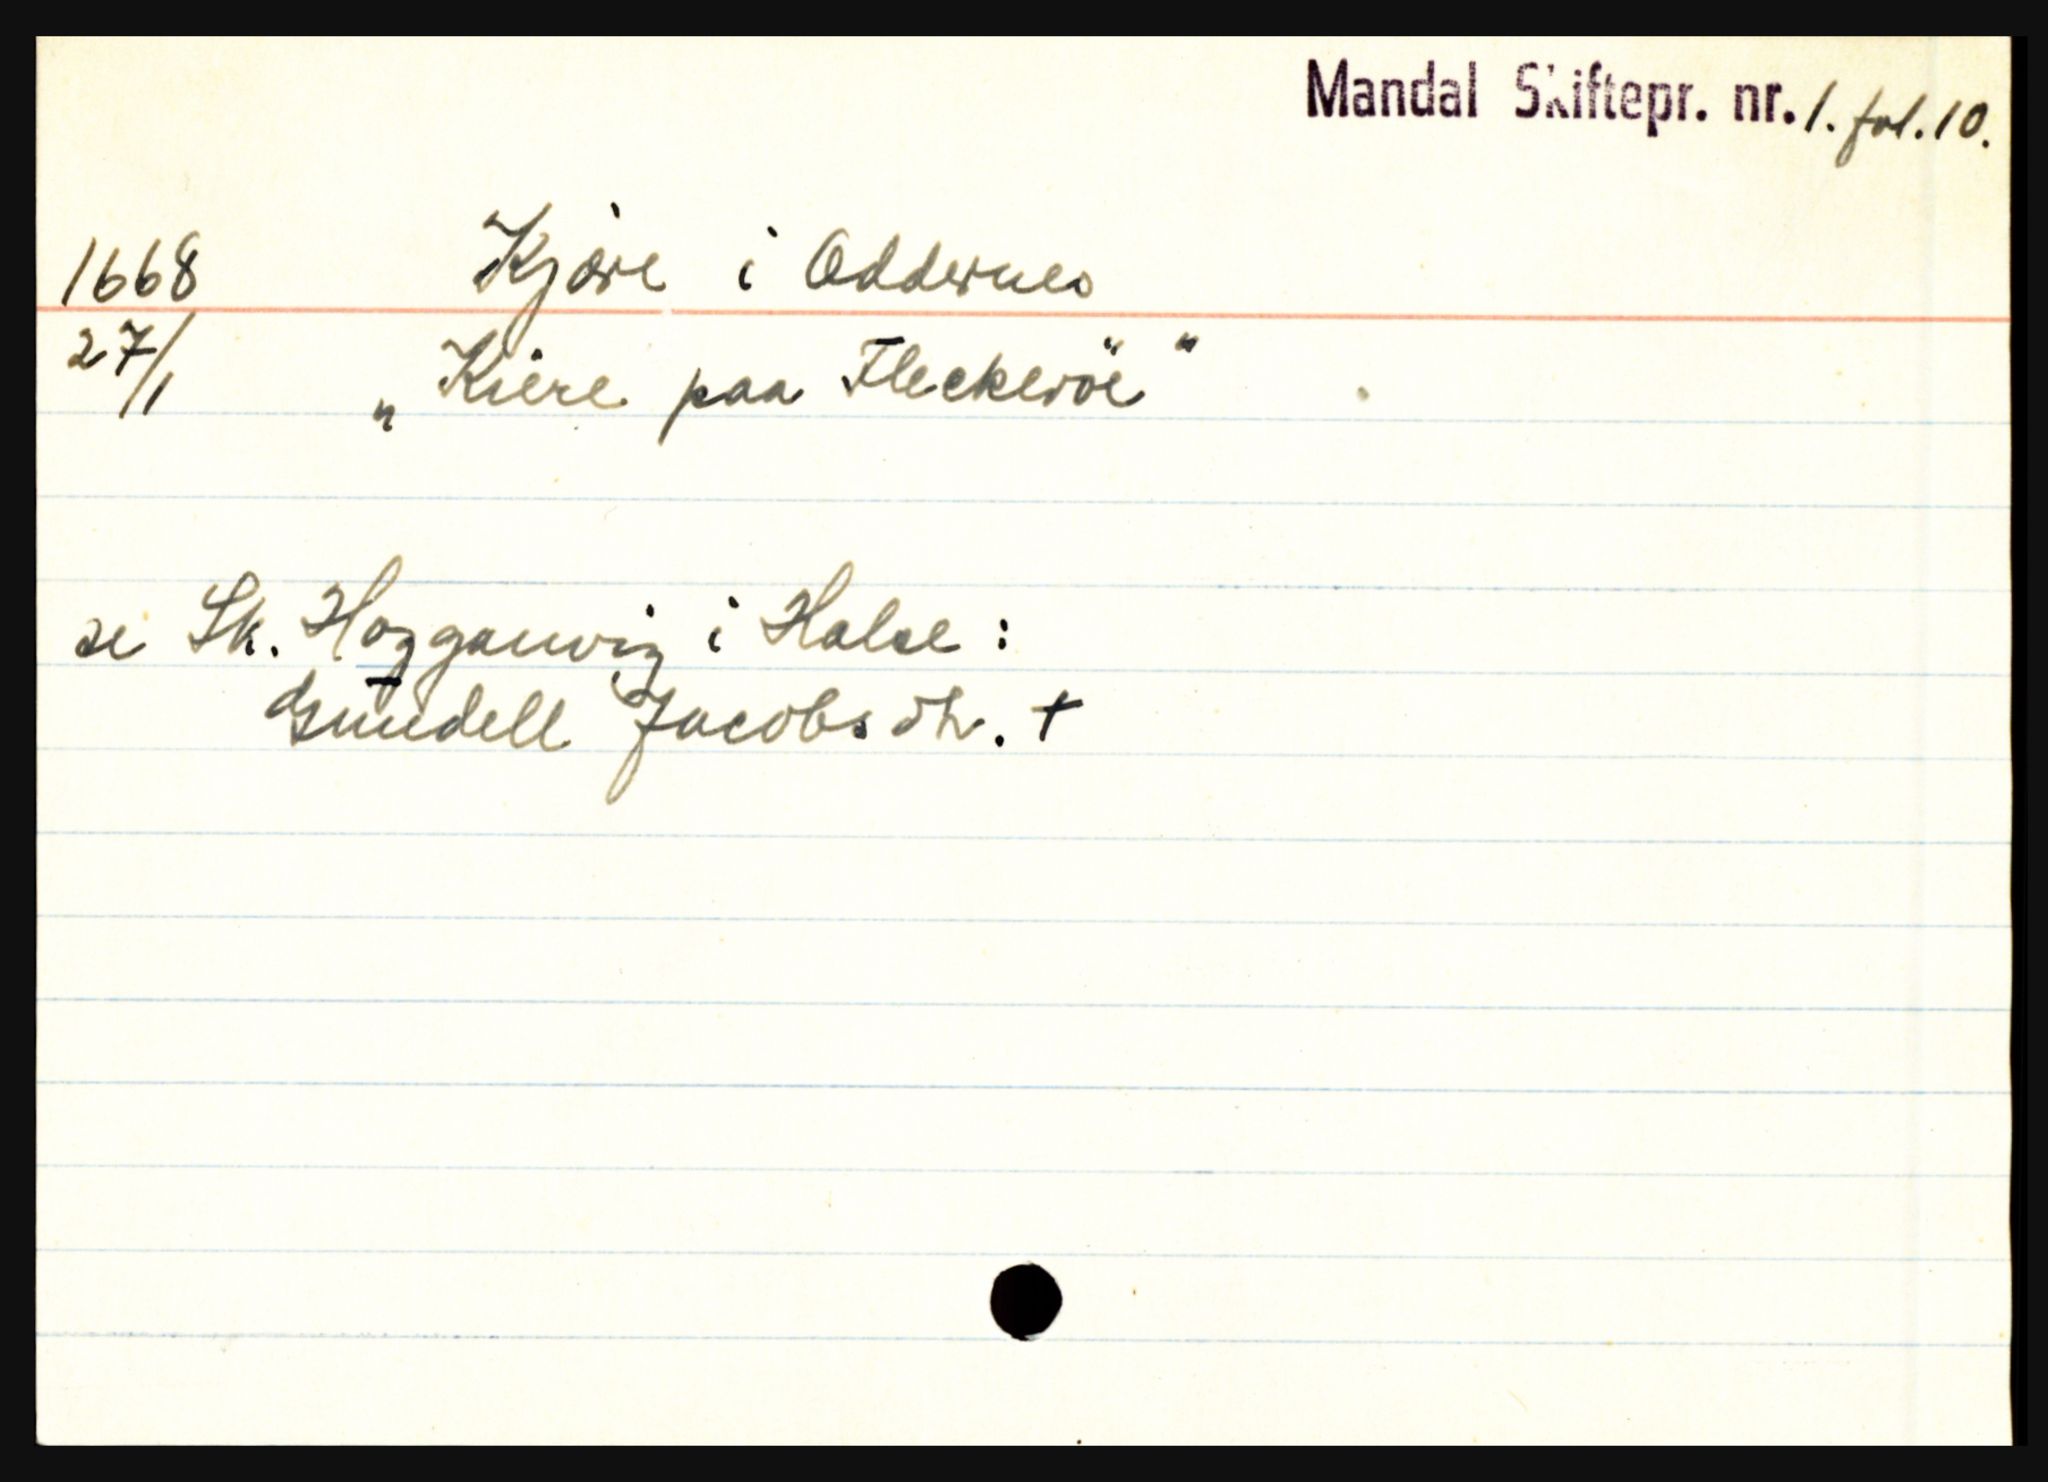 Mandal Skiftepr. nr. 1. fol. 10.
1668 Kjære i Oddernes
27/1 „Kiere paa Fleckeröe“
se Sk. Hogganvig i Halse:
Gundell Jacobsdtr. +